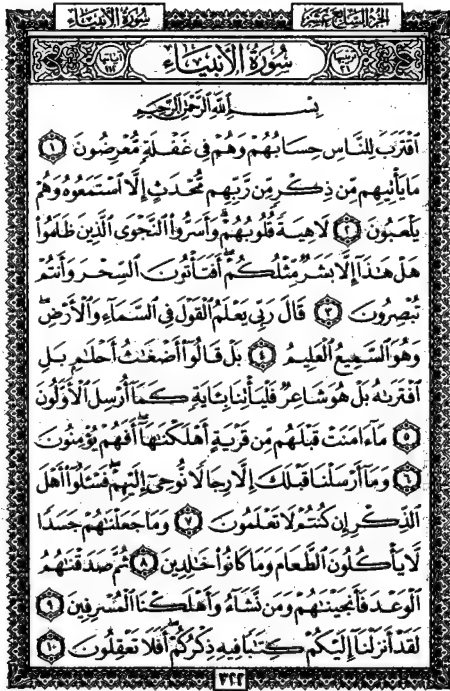 سُورَةُ الْأَنبِيَاءِ الجُزْءُ السَّابِعَ عَشَرَ
سُورَةُ الْأَنبِيَاءِ
بِسْمِ اللَّهِ الرَّحْمَٰنِ الرَّحِيمِ
اقْتَرَبَ لِلنَّاسِ حِسَابُهُمْ وَهُمْ فِي غَفْلَةٍ مُّعْرِضُونَ ١
مَا يَأْتِيهِم مِّن ذِكْرٍ مِّن رَّبِّهِم مُّحْدَثٍ إِلَّا اسْتَمَعُوهُ وَهُمْ
يَلْعَبُونَ ٢ لَاهِيَةً قُلُوبُهُمْ ۗ وَأَسَرُّوا النَّجْوَى الَّذِينَ ظَلَمُوا
هَلْ هَٰذَا إِلَّا بَشَرٌ مِّثْلُكُمْ ۖ أَفَتَأْتُونَ السِّحْرَ وَأَنتُمْ
تُبْصِرُونَ ٣ قَالَ رَبِّي يَعْلَمُ الْقَوْلَ فِي السَّمَاءِ وَالْأَرْضِ ۖ
وَهُوَ السَّمِيعُ الْعَلِيمُ ٤ بَلْ قَالُوا أَضْغَاثُ أَحْلَامٍ بَلِ
افْتَرَاهُ بَلْ هُوَ شَاعِرٌ فَلْيَأْتِنَا بِآيَةٍ كَمَا أُرْسِلَ الْأَوَّلُونَ
٥ مَا آمَنَتْ قَبْلَهُم مِّن قَرْيَةٍ أَهْلَكْنَاهَا ۖ أَفَهُمْ يُؤْمِنُونَ
٦ وَمَا أَرْسَلْنَا قَبْلَكَ إِلَّا رِجَالًا نُّوحِي إِلَيْهِمْ ۖ فَسْـَٔلُوا أَهْلَ
الذِّكْرِ إِن كُنتُمْ لَا تَعْلَمُونَ ٧ وَمَا جَعَلْنَاهُمْ جَسَدًا
لَّا يَأْكُلُونَ الطَّعَامَ وَمَا كَانُوا خَالِدِينَ ٨ ثُمَّ صَدَقْنَاهُمُ
الْوَعْدَ فَأَنجَيْنَاهُمْ وَمَن نَّشَاءُ وَأَهْلَكْنَا الْمُسْرِفِينَ ٩
لَقَدْ أَنزَلْنَا إِلَيْكُمْ كِتَابًا فِيهِ ذِكْرُكُمْ ۖ أَفَلَا تَعْقِلُونَ ١٠
٣٢٢